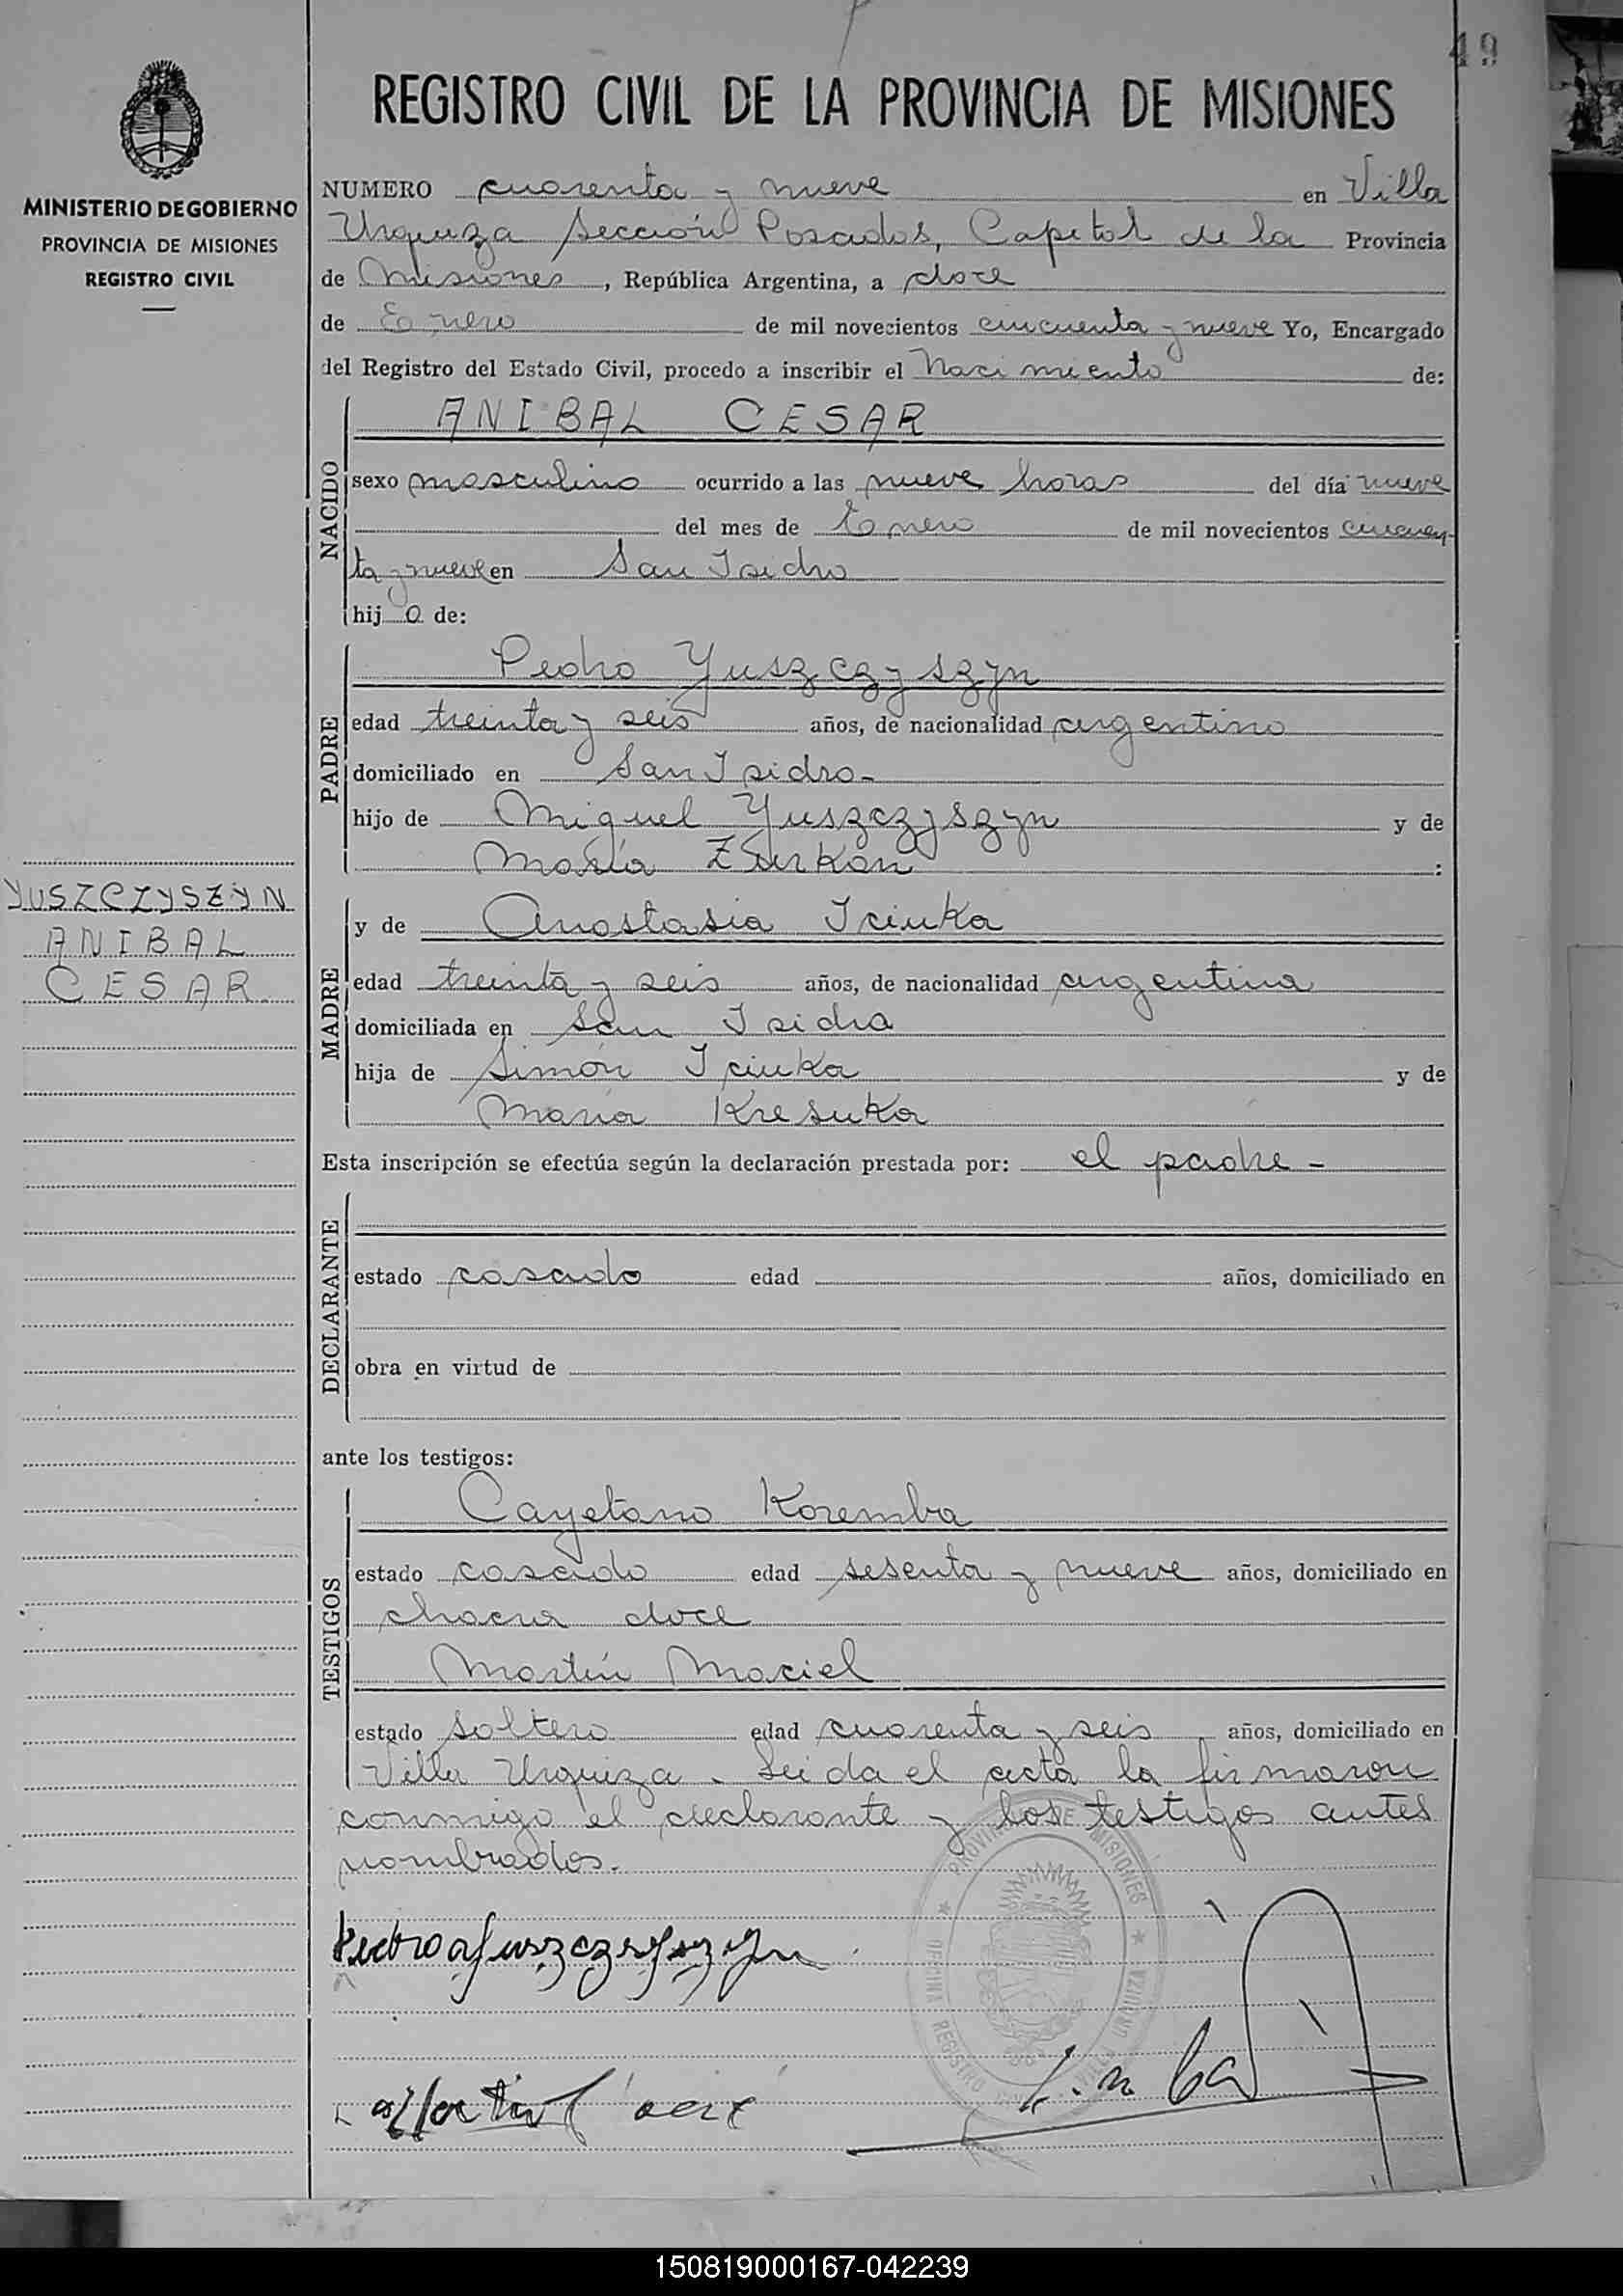 49
REGISTRO CIVIL DE LA PROVINCIA DE MISIONES
MINISTERIO DE GOBIERNO
PROVINCIA DE MISIONES
REGISTRO CIVIL
NUMERO cuarenta y nueve en Villa
Urquiza Sección Posadas, Capital de la Provincia
de Misiones, República Argentina, a doce
de Enero de mil novecientos cincuenta y nueve Yo, Encargado
del Registro del Estado Civil, procedo a inscribir el Nacimiento de:
NACIDO
ANIBAL CESAR
sexo masculino ocurrido a las nueve horas del día nueve
del mes de Enero de mil novecientos cincuen-
ta y nueve en San Isidro
hijo de:
PADRE
Pedro Yuszczyszyn
edad treinta y seis años, de nacionalidad argentino
domiciliado en San Isidro-
hijo de Miguel Yuszczyszyn y de
María Zurkan:
YUSZCZYSZYN
ANIBAL
CESAR.
MADRE
y de Anastasia Iciuka
edad treinta y seis años, de nacionalidad argentina
domiciliada en San Isidro
hija de Simón Iciuka y de
María Kresuka
Esta inscripción se efectúa según la declaración prestada por: el padre-
DECLARANTE
estado casado edad años, domiciliado en
obra en virtud de
ante los testigos:
TESTIGOS
Cayetano Koremba
estado casado edad sesenta y nueve años, domiciliado en
chacra doce
Martín Maciel
estado soltero edad cuarenta y seis años, domiciliado en
Villa Urquiza. Leida el acta la firmaron
conmigo el declarante y los testigos antes
nombrados.
PROVINCIA DE MISIONES
OFICINA REGISTRO CIVIL VILLA URQUIZA
Pedro Yuszczyszyn
150819000167-042239